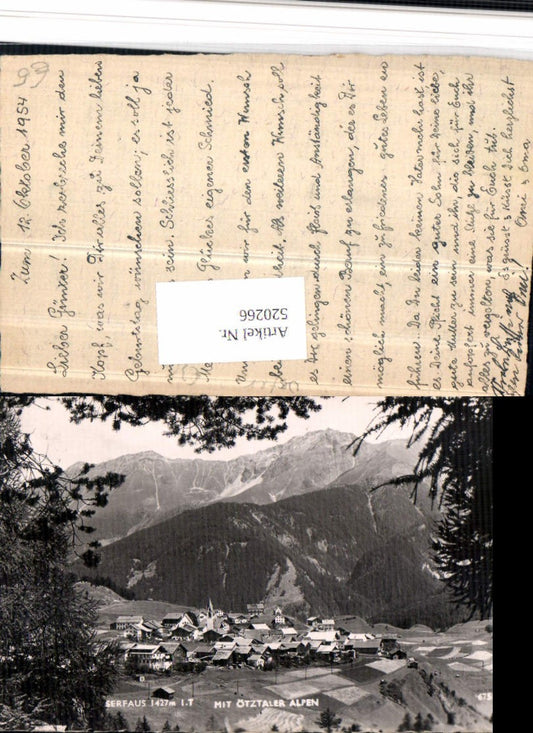 99
Zum 12. Oktober 1954
Lieber Günter! Ich zerbreche mir den
Kopf, was wir Dir alles zu Deinem lieben
Geburtstag wünschen sollen; es soll ja
sein. Schliesslich ist jeder
Glückes eigener Schmied.
wir für den ersten Wunsch
heit. Als weiteren Wunsch soll
es Dir gelingen durch Fleiss und Anständigkeit
einen schönen Beruf zu erlangen, der es Dir
möglich macht, ein zufriedenes gutes Leben zu
führen. Da Du leider keinen Vater mehr hast ist
es Deine Pflicht ein guter Sohn für Deine liebe,
gute Mutter zu sein und ihr, die sich für Euch
aufopfert immer eine Stütze zu bleiben, und ihr
alles zu vergelten, was sie für Euch tut.
Es grüsst & küsst Dich herzlichst
Omi
Artikel Nr.
520266
SERFAUS 1427m I.T MIT ÖTZTALER ALPEN 675